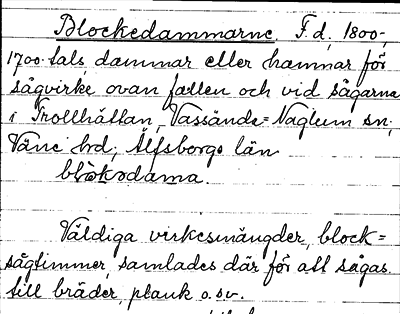 Blockedammarne, F.d. 1800-,
1700-tals dammar eller hamnar för
sågvirke ovan fallen och vid sågarna
i Trollhättan, Vassända-Naglum sn,
Väne hd; Älfsborgs län
blåkkodama.
Väldiga virkesmängder, block=
sågtimmer, samlades där för att sågas
till bräder, plank o.sv.